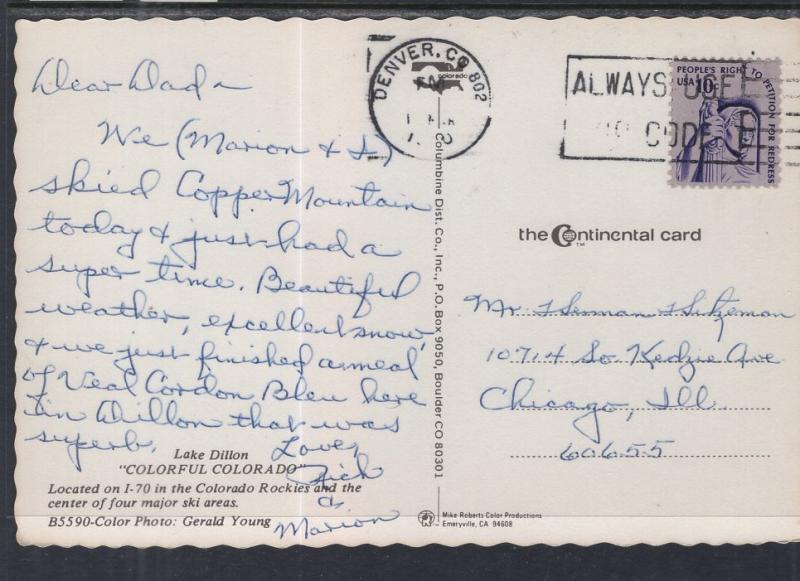 Dear Dad ~
We (Marion & I)
skied Copper Mountain
today & just had a
super time. Beautiful
weather, excellent snow,
& we just finished a meal
of Veal Cordon Bleu here
in Dillon that was
superb.
Love,
Rich
&
Marion
Lake Dillon
"COLORFUL COLORADO"
Located on I-70 in the Colorado Rockies and the
center of four major ski areas.
B5590-Color Photo: Gerald Young
Columbine Dist. Co., Inc., P.O. Box 9050, Boulder CO 80301
DENVER, CO 802
colorado
PM
ALWAYS USE
ZIP CODE
PEOPLE'S RIGHT TO PETITION FOR REDRESS
USA 10c
the Continental card
TM
Mr Herman Hitzeman
10714 So Kedzie Ave
Chicago, Ill.
60655
Mike Roberts Color Productions
Emeryville, CA 94608